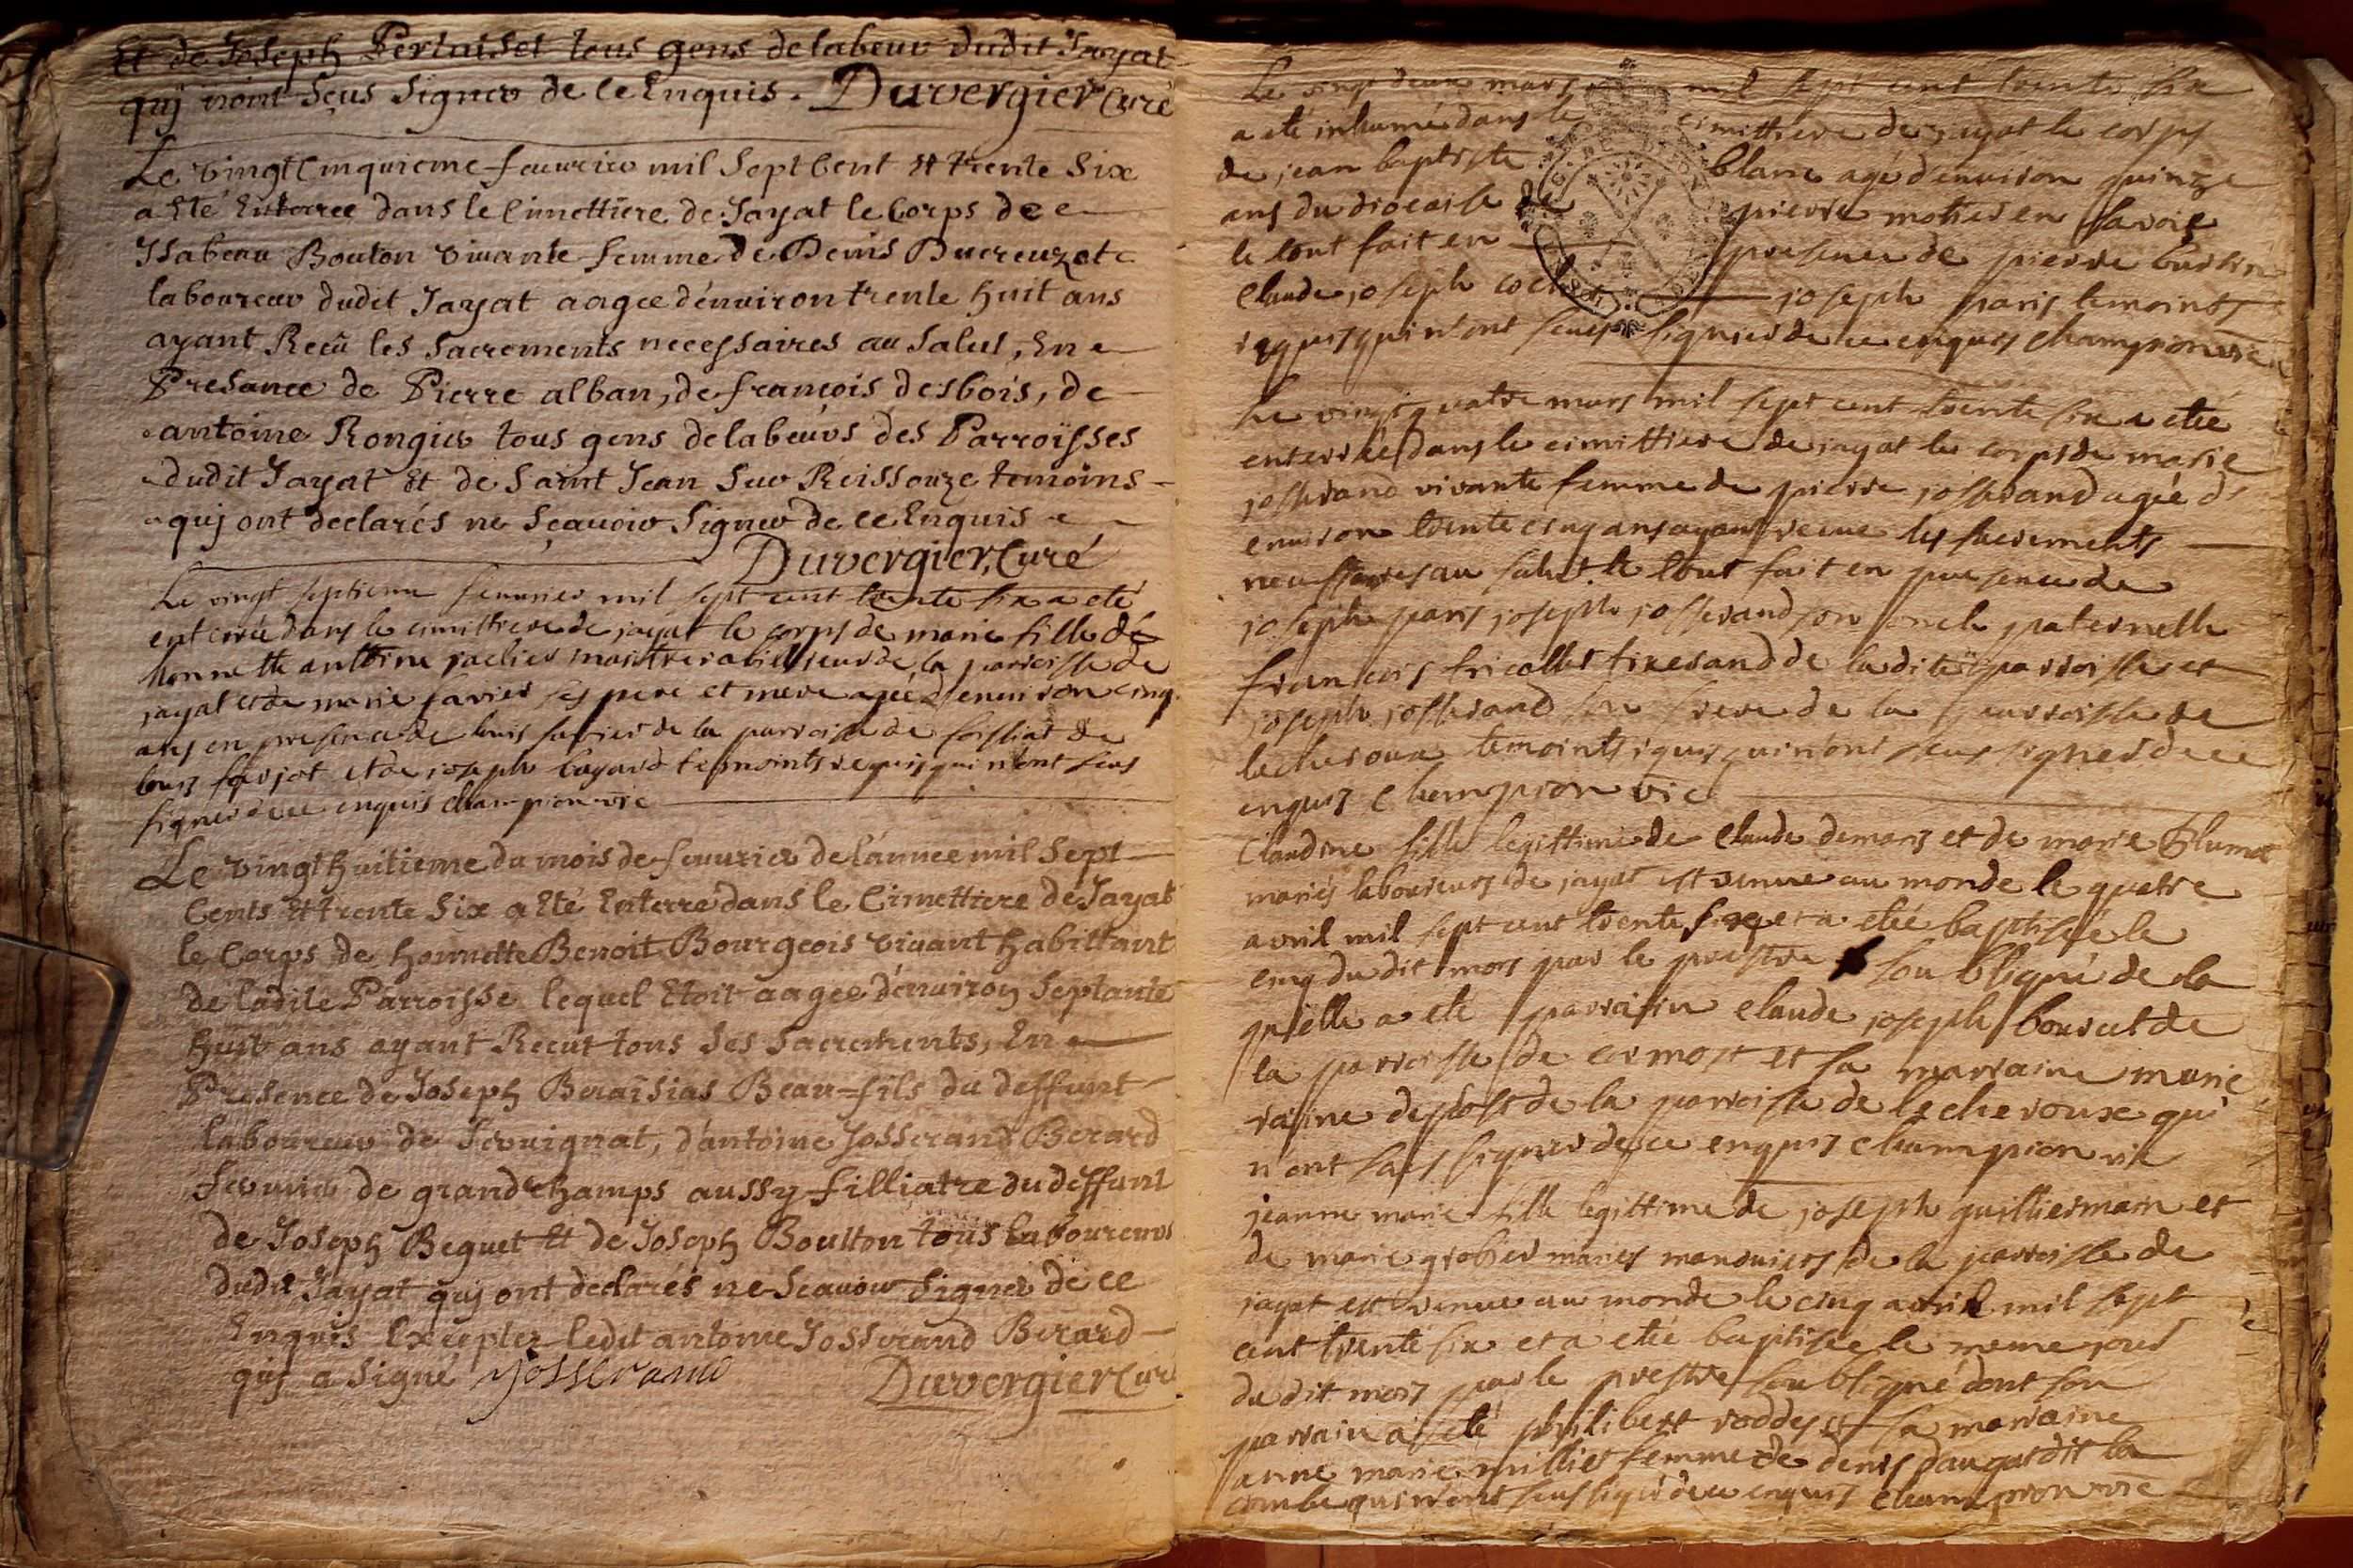 Et de Joseph Pertuiset tous gens de labeur dudit Jayat
quj n'ont Sçus Signer de ce Enquis. Duvergier Curé
Le vingt Cinquieme feuurier mil Sept Cent Et trente Six
a Eté Enterree dans le Cimettiere de Jayat le Corps de
Isabeau Bouton vivante femme de Denis Ducreuzet
laboureur dudit Jayat aagee d'enuiron trente huit ans
ayant Recû les Sacrements necessaires au Salut, En
Presance de Pierre alban, de françois desbois, de
antoine Rongier tous gens de labeurs des Parroisses
dudit Jayat Et de Saint Jean Sur Reissouze temoins
quj ont declarés ne Sçauoir Signer de ce Enquis
Duvergier, Curé
Le vingt septieme feuurier mil sept cent trente six a eté
enterrée dans le cimittiere de jayat le corps de marie fille de
honnette anttoine maitre de la parroisse de
jayat et de marie favier ses pere et mere agée d'enuiron cinq
ans en presence de louis favier de la parroisse de foissiat de
louis farjot et de joseph bayard temoints requis qui n'ont seus
signer de ce enquis champion vic
Le vingt huitieme du mois de feuurier de l'année mil Sept
Cents Et trente Six a Eté Enterré dans le Cimettiere de Jayat
le Corps de honnette Benoit Bourgeois vivant habittant
de ladite Parroisse lequel Etoit aagee d'enuiron Septante
huit ans ayant Recut tous Ses Sacrements, En
Presence de Joseph Beraisias Beau=fils du deffunt
laboureur de d'antoine Josserand Berard
de grandchamps aussy filliatre du deffunt
de Joseph Beguet Et de Joseph Boulton tous laboureurs
dudit Jayat quj ont declarés ne Scauoir Signer de ce
Enquis Exceptez ledit antoine Josserand Berard
quj a Signé Josserand Duvergier Curé
Le vingt deux mars mil sept cent trente six
a eté inhumé dans le cimittiere de jayat le corps
de jean baptiste blanc agé d'enuiron quinze
ans du diocaise de pierre en savoie
le tout fait en presence de pierre
Claude joseph joseph paris temoints
requis qui n'ont seus signer de ce enquis champion vic
Le vingt quatre mars mil sept cent trente six a etée
enterrée dans le cimittiere de jayat le corps de marie
josserand vivante femme de pierre josserand agée d
enuiron trente cinq ans ayant receue les sacrements
necessaires au salut le tout fait en presence de
joseph paris joseph josserand son oncle paternelle
francois tricollet de la dite parroisse et
joseph josserand son frere de la parroisse de
lecheroux temoints qui n'ont seus signer de ce
enquis champion vic
Claudine fille legittime de Claude demars et de marie
mariés laboureurs de jayat est venue au monde le quatre
avril mil sept cent trente six et a etée baptisée le
cinq du dit mois par le prestre soubsigné de la
quelle a eté parrain claude joseph bouvet de
la parroisse de cormost et sa marraine marie
de la parroisse de lecheroux qui
n'ont seus signer de ce enquis champion vic
jeanne marie fille legittime de joseph guilliermain et
de marie grobier mariés manouiers de la parroisse de
jayat est venue au monde le cinq avril mil sept
cent trente six et a etée baptisée le meme jour
du dit mois par le prestre soubsigné dont son
parrain a eté philibert et sa marraine
anne marie millier femme de denis dit la
combe qui n'ont seus signer de ce enquis champion vic